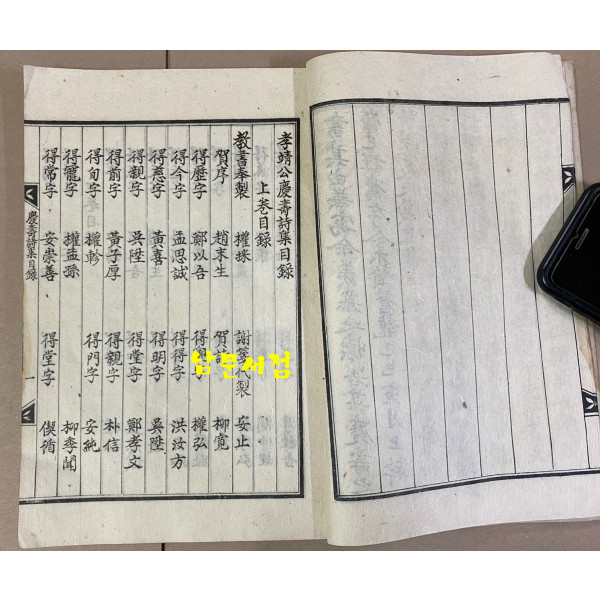 孝靖公慶壽詩集目錄
上卷目錄
教書奉製 權採 謝箋代製 安止
賀序 趙末生 賀詩 柳寬
得歷字 鄭以吾 權弘
得今字 孟思誠 得得字 洪汝方
得慈字 黃喜 得明字 吳陞
得親字 吳陞 得堂字 鄭孝文
得前字 黃子厚 得親字 朴信
得旬字 權軫 得門字 安純
得寵字 權孟孫 柳季聞
得常字 安崇善 得堂字 偰循
慶壽詩集目錄 一
남문서점